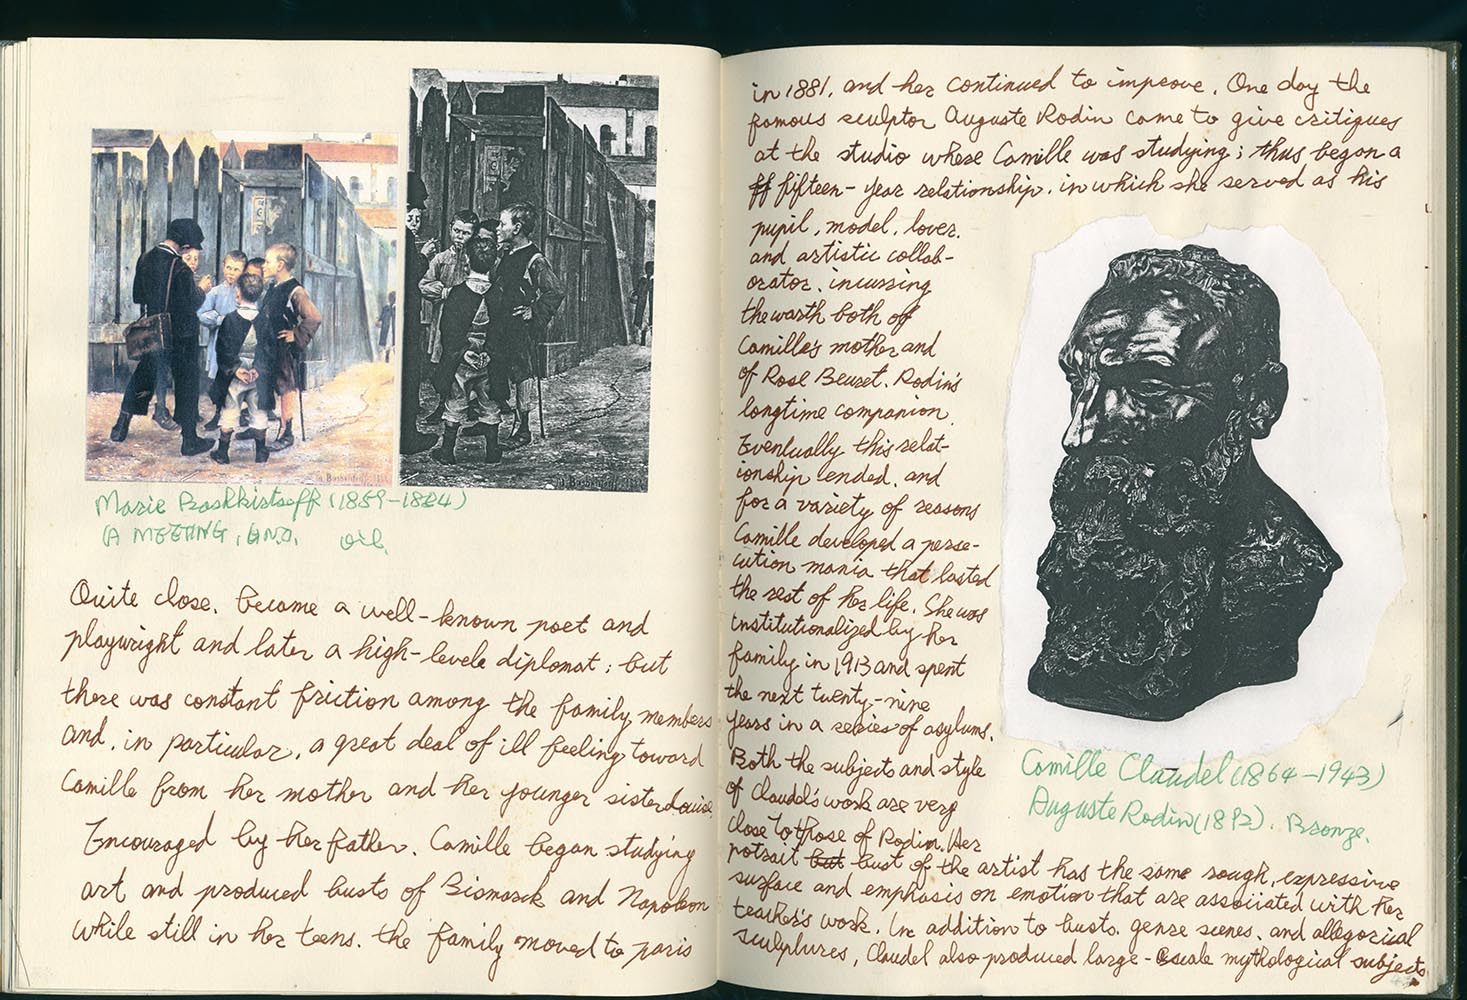 Marie Bashkirtseff (1859-1884)
A MEETING, n.d. oil.
Quite close. became a well-known poet and
playwright and later a high-levele diplomat; but
there was constant friction among the family members
and, in particular, a great deal of ill feeling toward
Camille from her mother and her younger sister Louise.
Encouraged by her father. Camille began studying
art and produced busts of Bismarck and Napoleon
while still in her teens. the family moved to paris
in 1881, and her continued to improve. One day the
famous sculptor Auguste Rodin came to give critiques
at the studio where Camille was studying; thus began a
fifteen-year relationship. in which she served as his
pupil, model, lover.
and artistic collab-
orator. incurring
the warth both of
Camille's mother and
of Rose Beuret. Rodin's
longtime companion.
Eventually this relat-
ionship ended, and
for a variety of reasons
Camille developed a perse-
cution mania that lasted
the rest of her life. She was
institutionalized by her
family in 1913 and spent
the next twenty-nine
years in a series of asylums.
Both the subjects and style
of Claudel's work are very
close to those of Rodin. Her
potrait bust of the artist has the same rough, expressive
surface and emphasis on emotion that are associated with her
teacher's work. In addition to busts, genre scenes, and allegorical
sculptures, Claudel also produced large-scale mythological subjects
Camille Claudel (1864-1943)
Auguste Rodin (1892). Bronze.